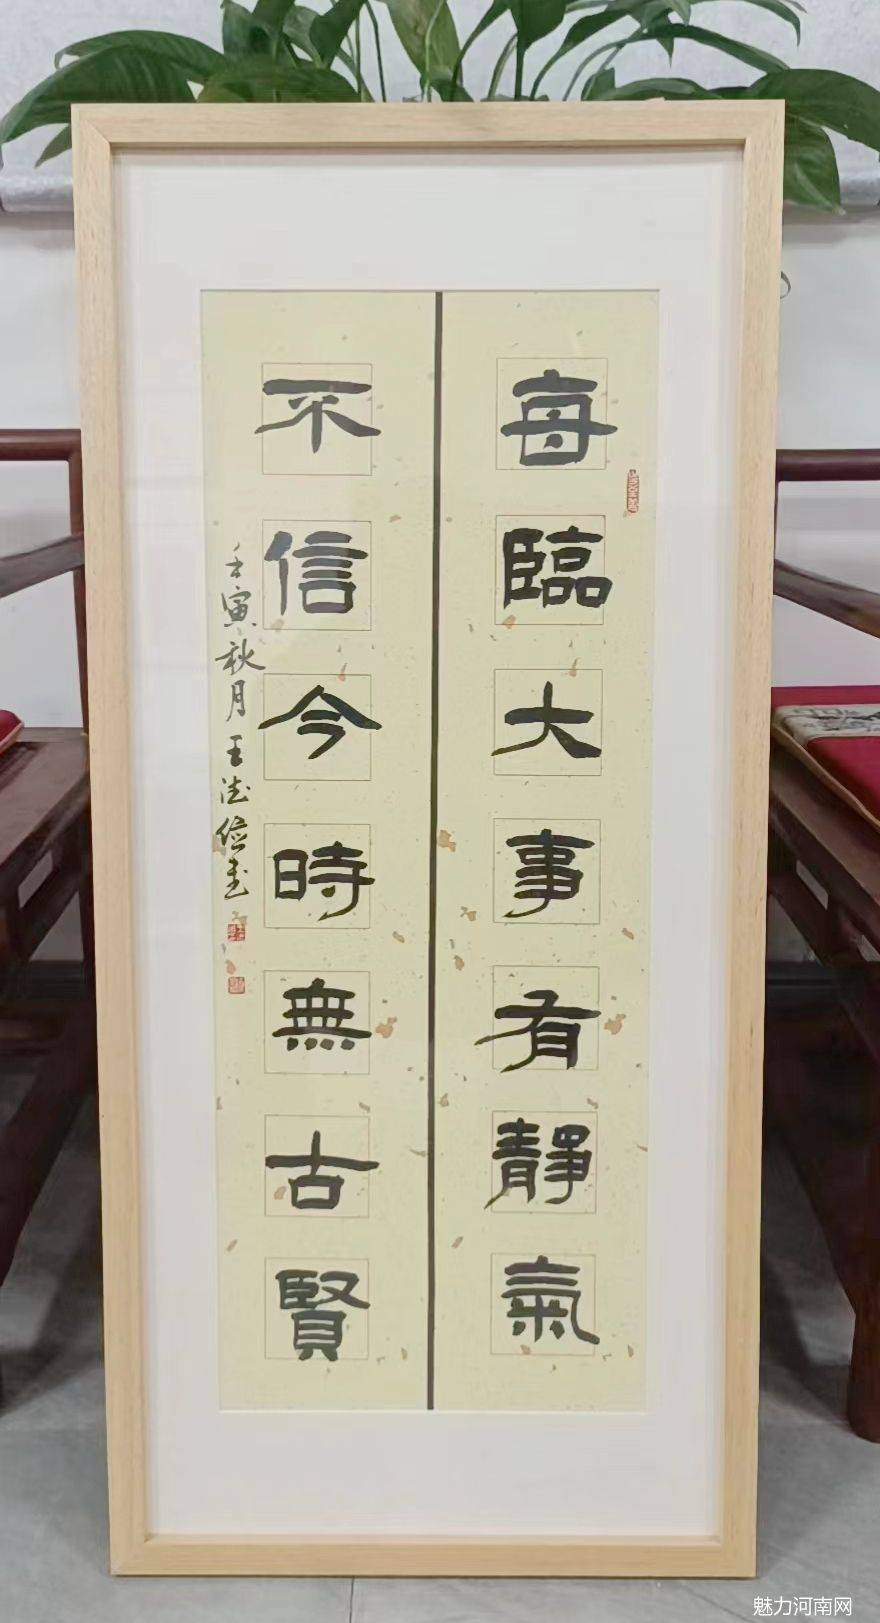 每臨大事有靜氣
不信今時無古賢
壬寅秋月王德俭書
魅力河南网